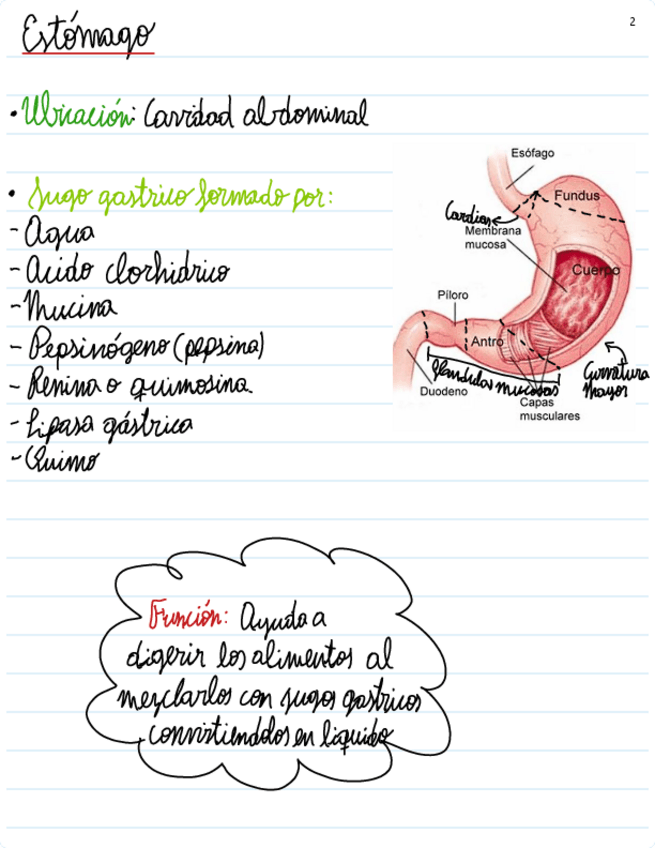 2
Estómago
• Ubicación: Cavidad abdominal
• Jugo gastrico formado por:
- Agua
- Acido clorhidrico
- Mucina
- Pepsinógeno (pepsina)
- Renina o quimosina.
- Lipasa gástrica
- Quimo
Esófago
Fundus
Cardias
Membrana
mucosa
Cuerpo
Píloro
Antro
Glandulas mucosas
Duodeno
Capas
musculares
Curvatura
Mayor
Función: Ayuda a
digerir los alimentos al
mezclarlos con jugos gastricos
convirtiendolos en liquido